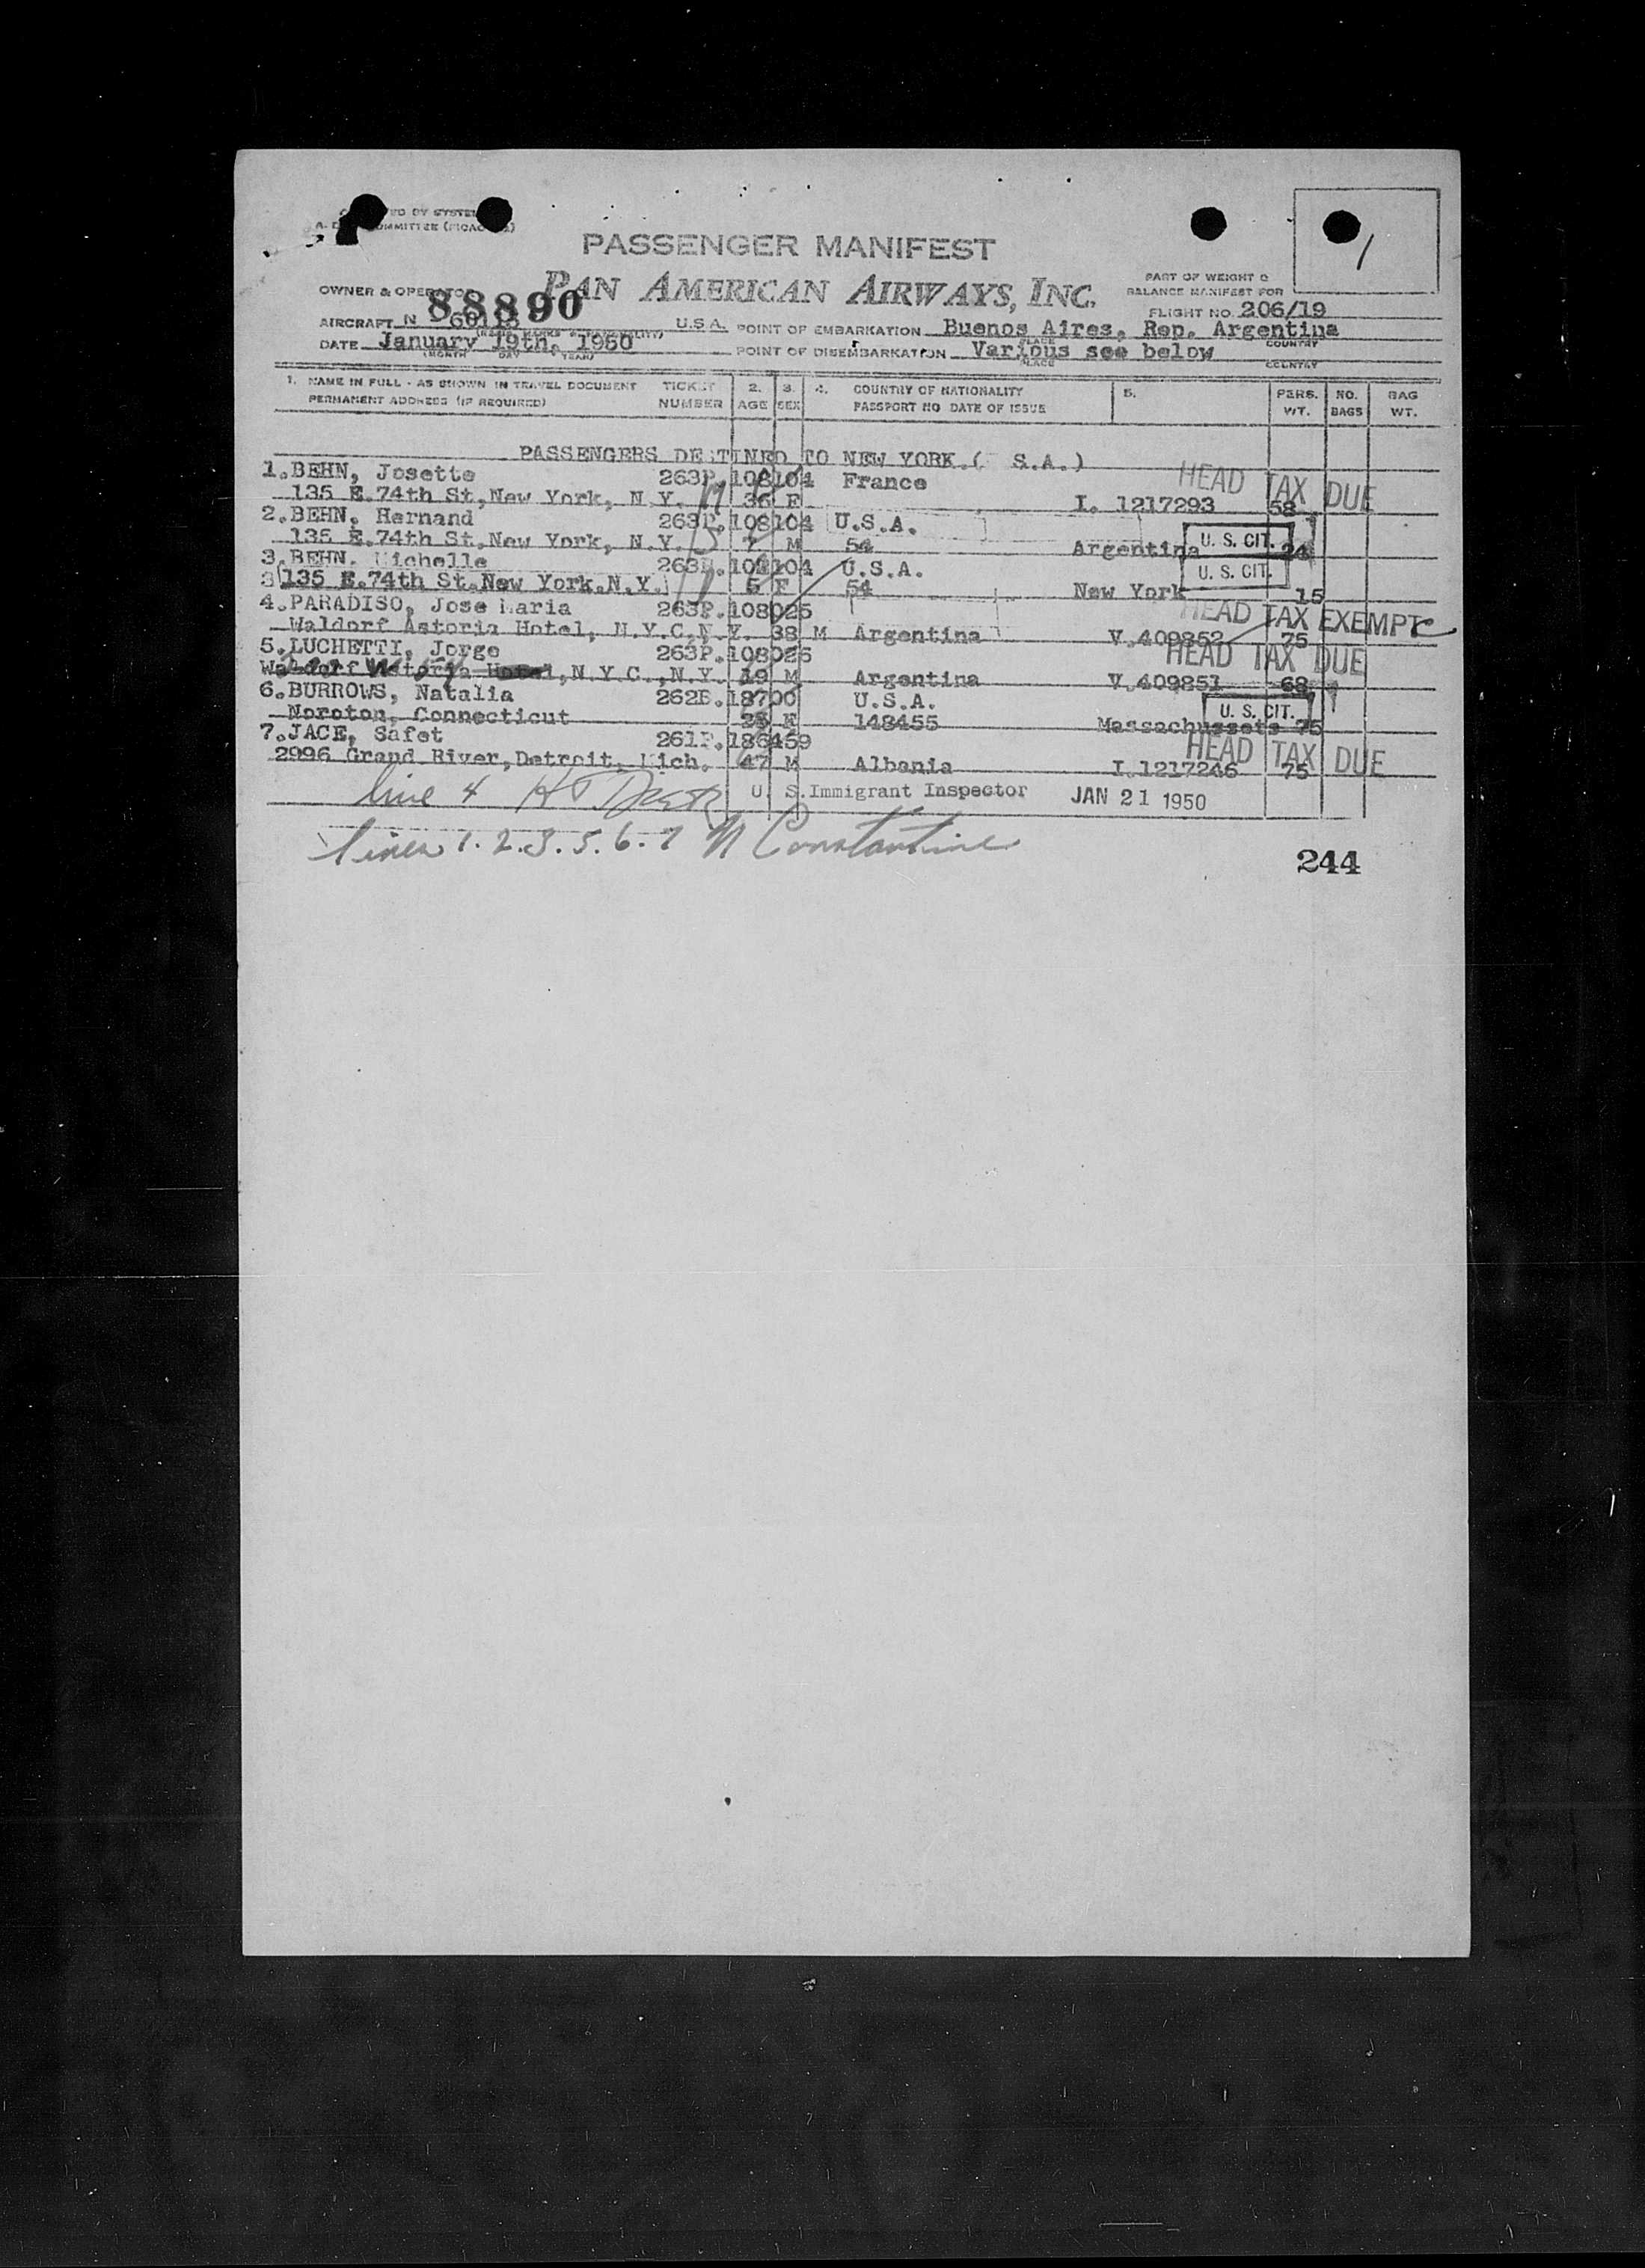 PASSENGER MANIFEST
PAN AMERICAN AIRWAYS, INC.
PART OF WEIGHT &
BALANCE MANIFEST FOR
1
OWNER & OPERATOR
88890
FLIGHT NO. 206/19
AIRCRAFT N U.S.A. POINT OF EMBARKATION Buenos Aires, Rep. Argentina
PLACE COUNTRY
DATE January 19th, 1950 POINT OF DISEMBARKATION Various see below
(MONTH DAY YEAR) PLACE COUNTRY
1. NAME IN FULL - AS SHOWN IN TRAVEL DOCUMENT TICKET 2. 3. 4. COUNTRY OF NATIONALITY 5. PERS. NO. BAG
PERMANENT ADDRESS (IF REQUIRED) NUMBER AGE SEX PASSPORT NO DATE OF ISSUE WT. BAGS WT.
PASSENGERS DESTINED TO NEW YORK.( S.A.)
1.BEHN, Josette 263P.108104 France HEAD TAX DUE
135 E.74th St,New York, N.Y. 36 F I. 1217293 58
2.BEHN, Hernand 263P.108104 U.S.A.
135 E.74th St,New York, N.Y. 7 M 54 Argentina U. S. CIT. 24
3.BEHN, Michelle 263P.108104 U.S.A. U. S. CIT.
3 135 E.74th St.New York.N.Y. 5 F 54 New York 15
4.PARADISO, Jose Maria 263P.108025 HEAD TAX EXEMPT
Waldorf Astoria Hotel, N.Y.C,N.Y. 38 M Argentina V.409852 75
5.LUCHETTI, Jorge 263P.108026 HEAD TAX DUE
Waldorf Astoria Hotel,N.Y.C.,N.Y. 49 M Argentina V.409851 68
6.BURROWS, Natalia 262B.18700 U.S.A. U. S. CIT.
Noroton, Connecticut F 148455 Massachussets 75
7.JACE, Safet 261P.186459 HEAD TAX DUE
2996 Grand River,Detroit, Mich. 47 M Albania I.1217246 75
line 4 U S.Immigrant Inspector JAN 21 1950
lines 1. 2. 3. 5. 6. 7 N Constantine
244